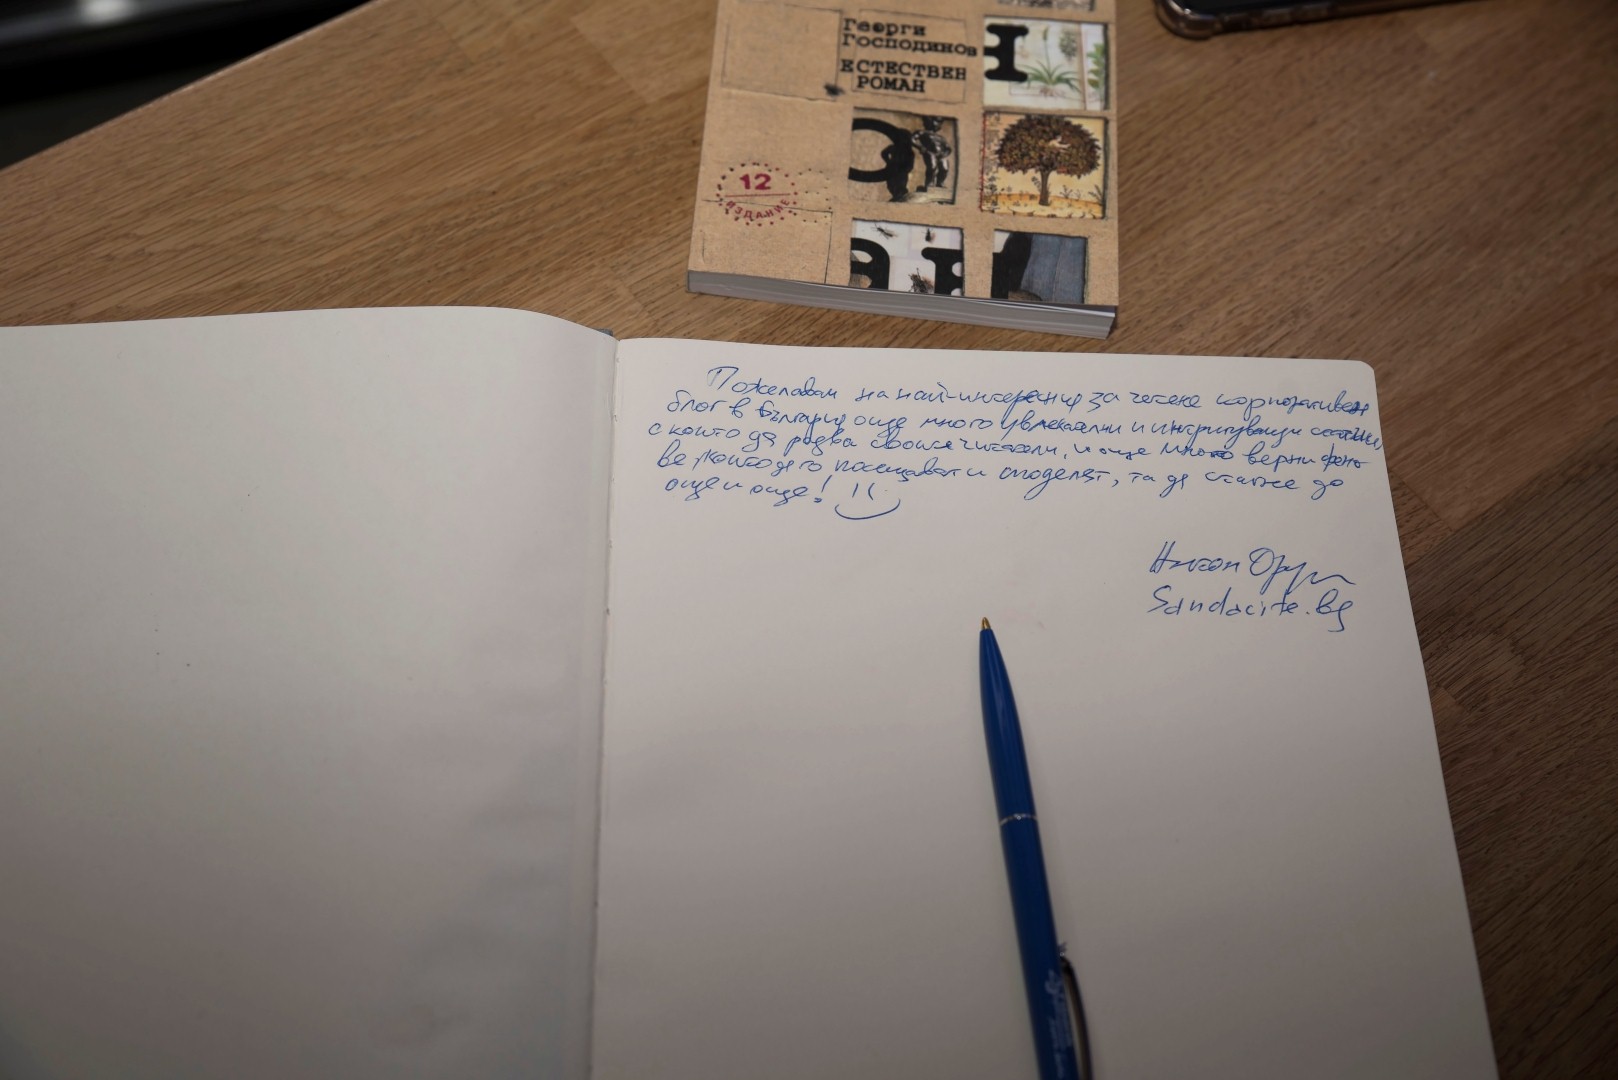 Георги
Господинов
ЕСТЕСТВЕН
РОМАН
н
а н
12
ИЗДАНИЕ
Пожелавам на най-интересния за четене корпоративен
блог в България още много увлекателни и интригуващи статии,
с които да радва своите читатели, и още много верни фено
ве, които да го посещават и споделят, та да стигне до
още и още!
Sandacite.bg